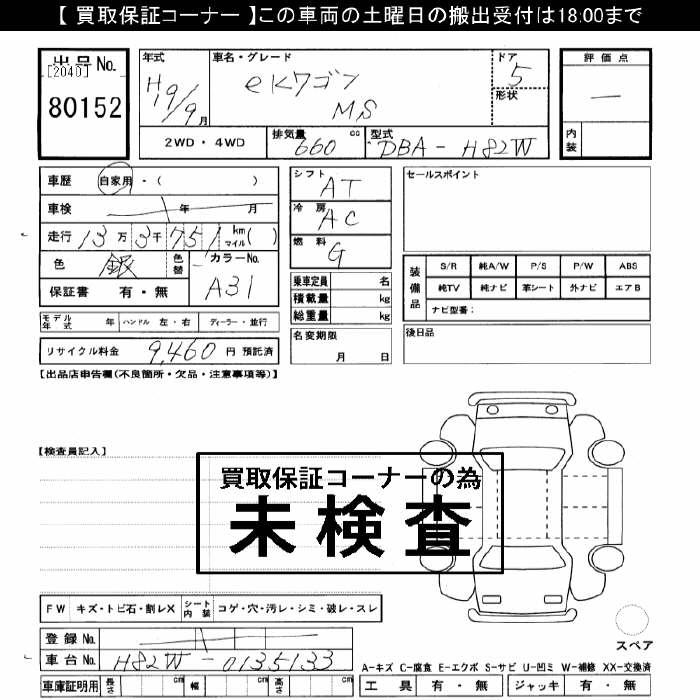 【 買取保証コーナー 】この車両の土曜日の搬出受付は18:00まで
出品No.
[2040]
80152
年式
H19/9月
車名・グレード
eKワゴン
MS
ドア
5
形状
評価点
—
内装
2WD・4WD
排気量 660 cc
型式 DBA-H82W
車歴 自家用・( )
車検 年 月
走行 13万3千751 km マイル( )
色 銀 色替
カラーNo. A31
保証書 有・無
シフト AT
冷房 AC
燃料 G
乗車定員 名
積載量 kg
総重量 kg
セールスポイント
装備品
S/R 純A/W P/S P/W ABS
純TV 純ナビ 革シート 外ナビ エアB
ナビ型番:
モデル年式 年 ハンドル 左・右 ディーラー・並行
名変期限
月 日
後日品
リサイクル料金 9,460 円 預託済
【出品店申告欄(不良箇所・欠品・注意事項等)】
【検査員記入】
買取保証コーナーの為
未検査
FW キズ・トビ石・割レX シート内装 コゲ・穴・汚レ・シミ・破レ・スレ
登録No.
車台No. H82W-0135133
スペア
A-キズ C-腐食 E-エクボ S-サビ U-凹ミ W-補修 XX-交換済
車庫証明用 長さ cm 幅 cm 高さ cm
工具 有・無 ジャッキ 有・無